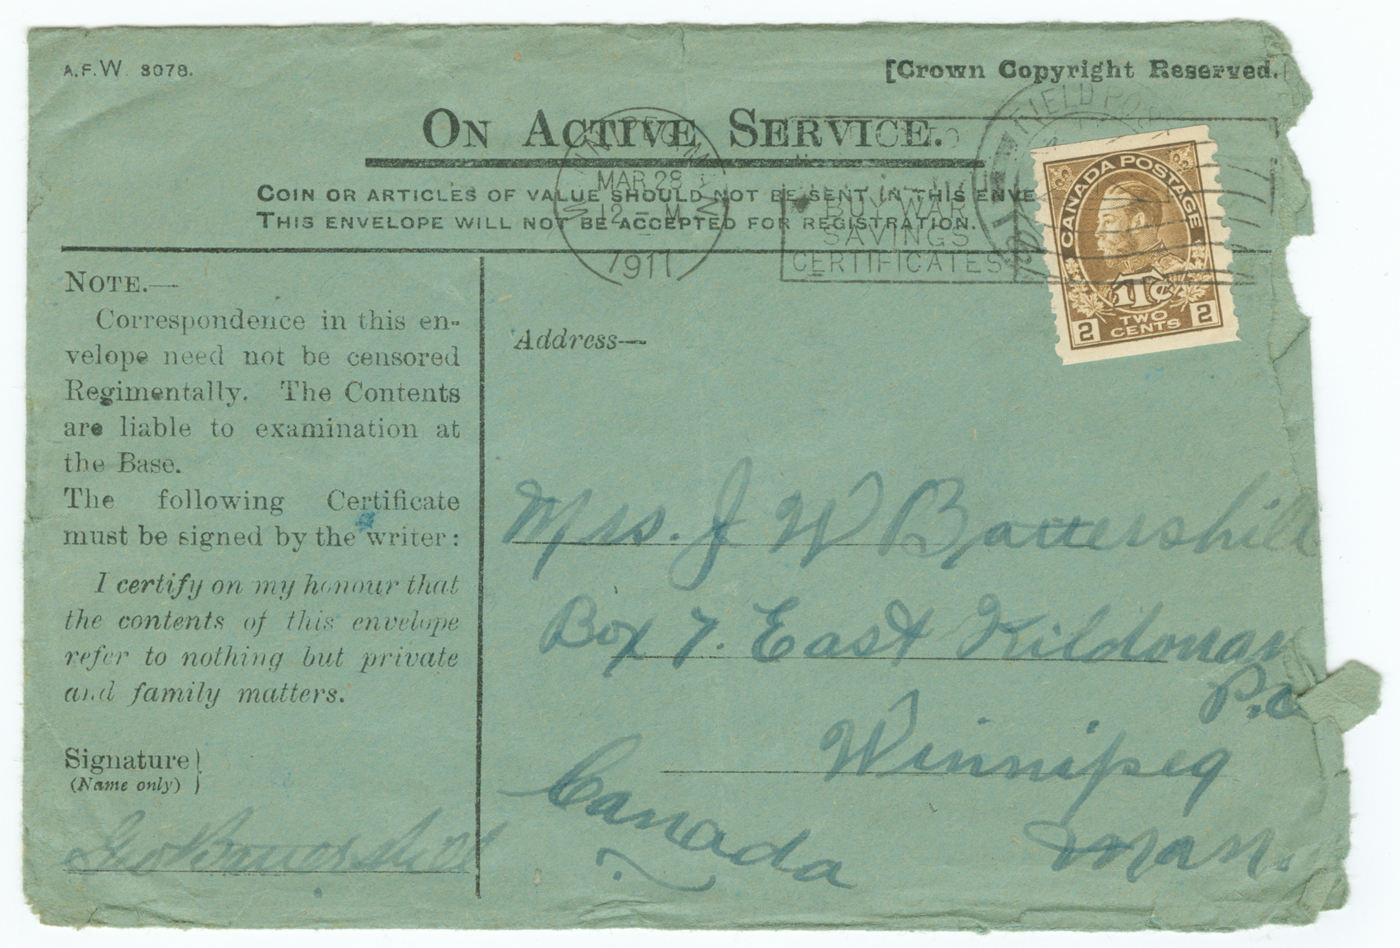 A.F.W. 3078.
[Crown Copyright Reserved.
ON ACTIVE SERVICE.
COIN OR ARTICLES OF VALUE SHOULD NOT BE SENT IN THIS ENVE
THIS ENVELOPE WILL NOT BE ACCEPTED FOR REGISTRATION.
FIELD PO
MAR 28
12 - M
1917
BUY WAR
SAVINGS
CERTIFICATES
CANADA POSTAGE
1Tc
2 TWO CENTS 2
NOTE.—
Correspondence in this en-
velope need not be censored
Regimentally. The Contents
are liable to examination at
the Base.
The following Certificate
must be signed by the writer:
I certify on my honour that
the contents of this envelope
refer to nothing but private
and family matters.
Signature
(Name only)
Geo Battershill
Address—
Mrs. J W Battershill
Box 7. East Kildonan
P.O
Winnipeg
Man.
Canada